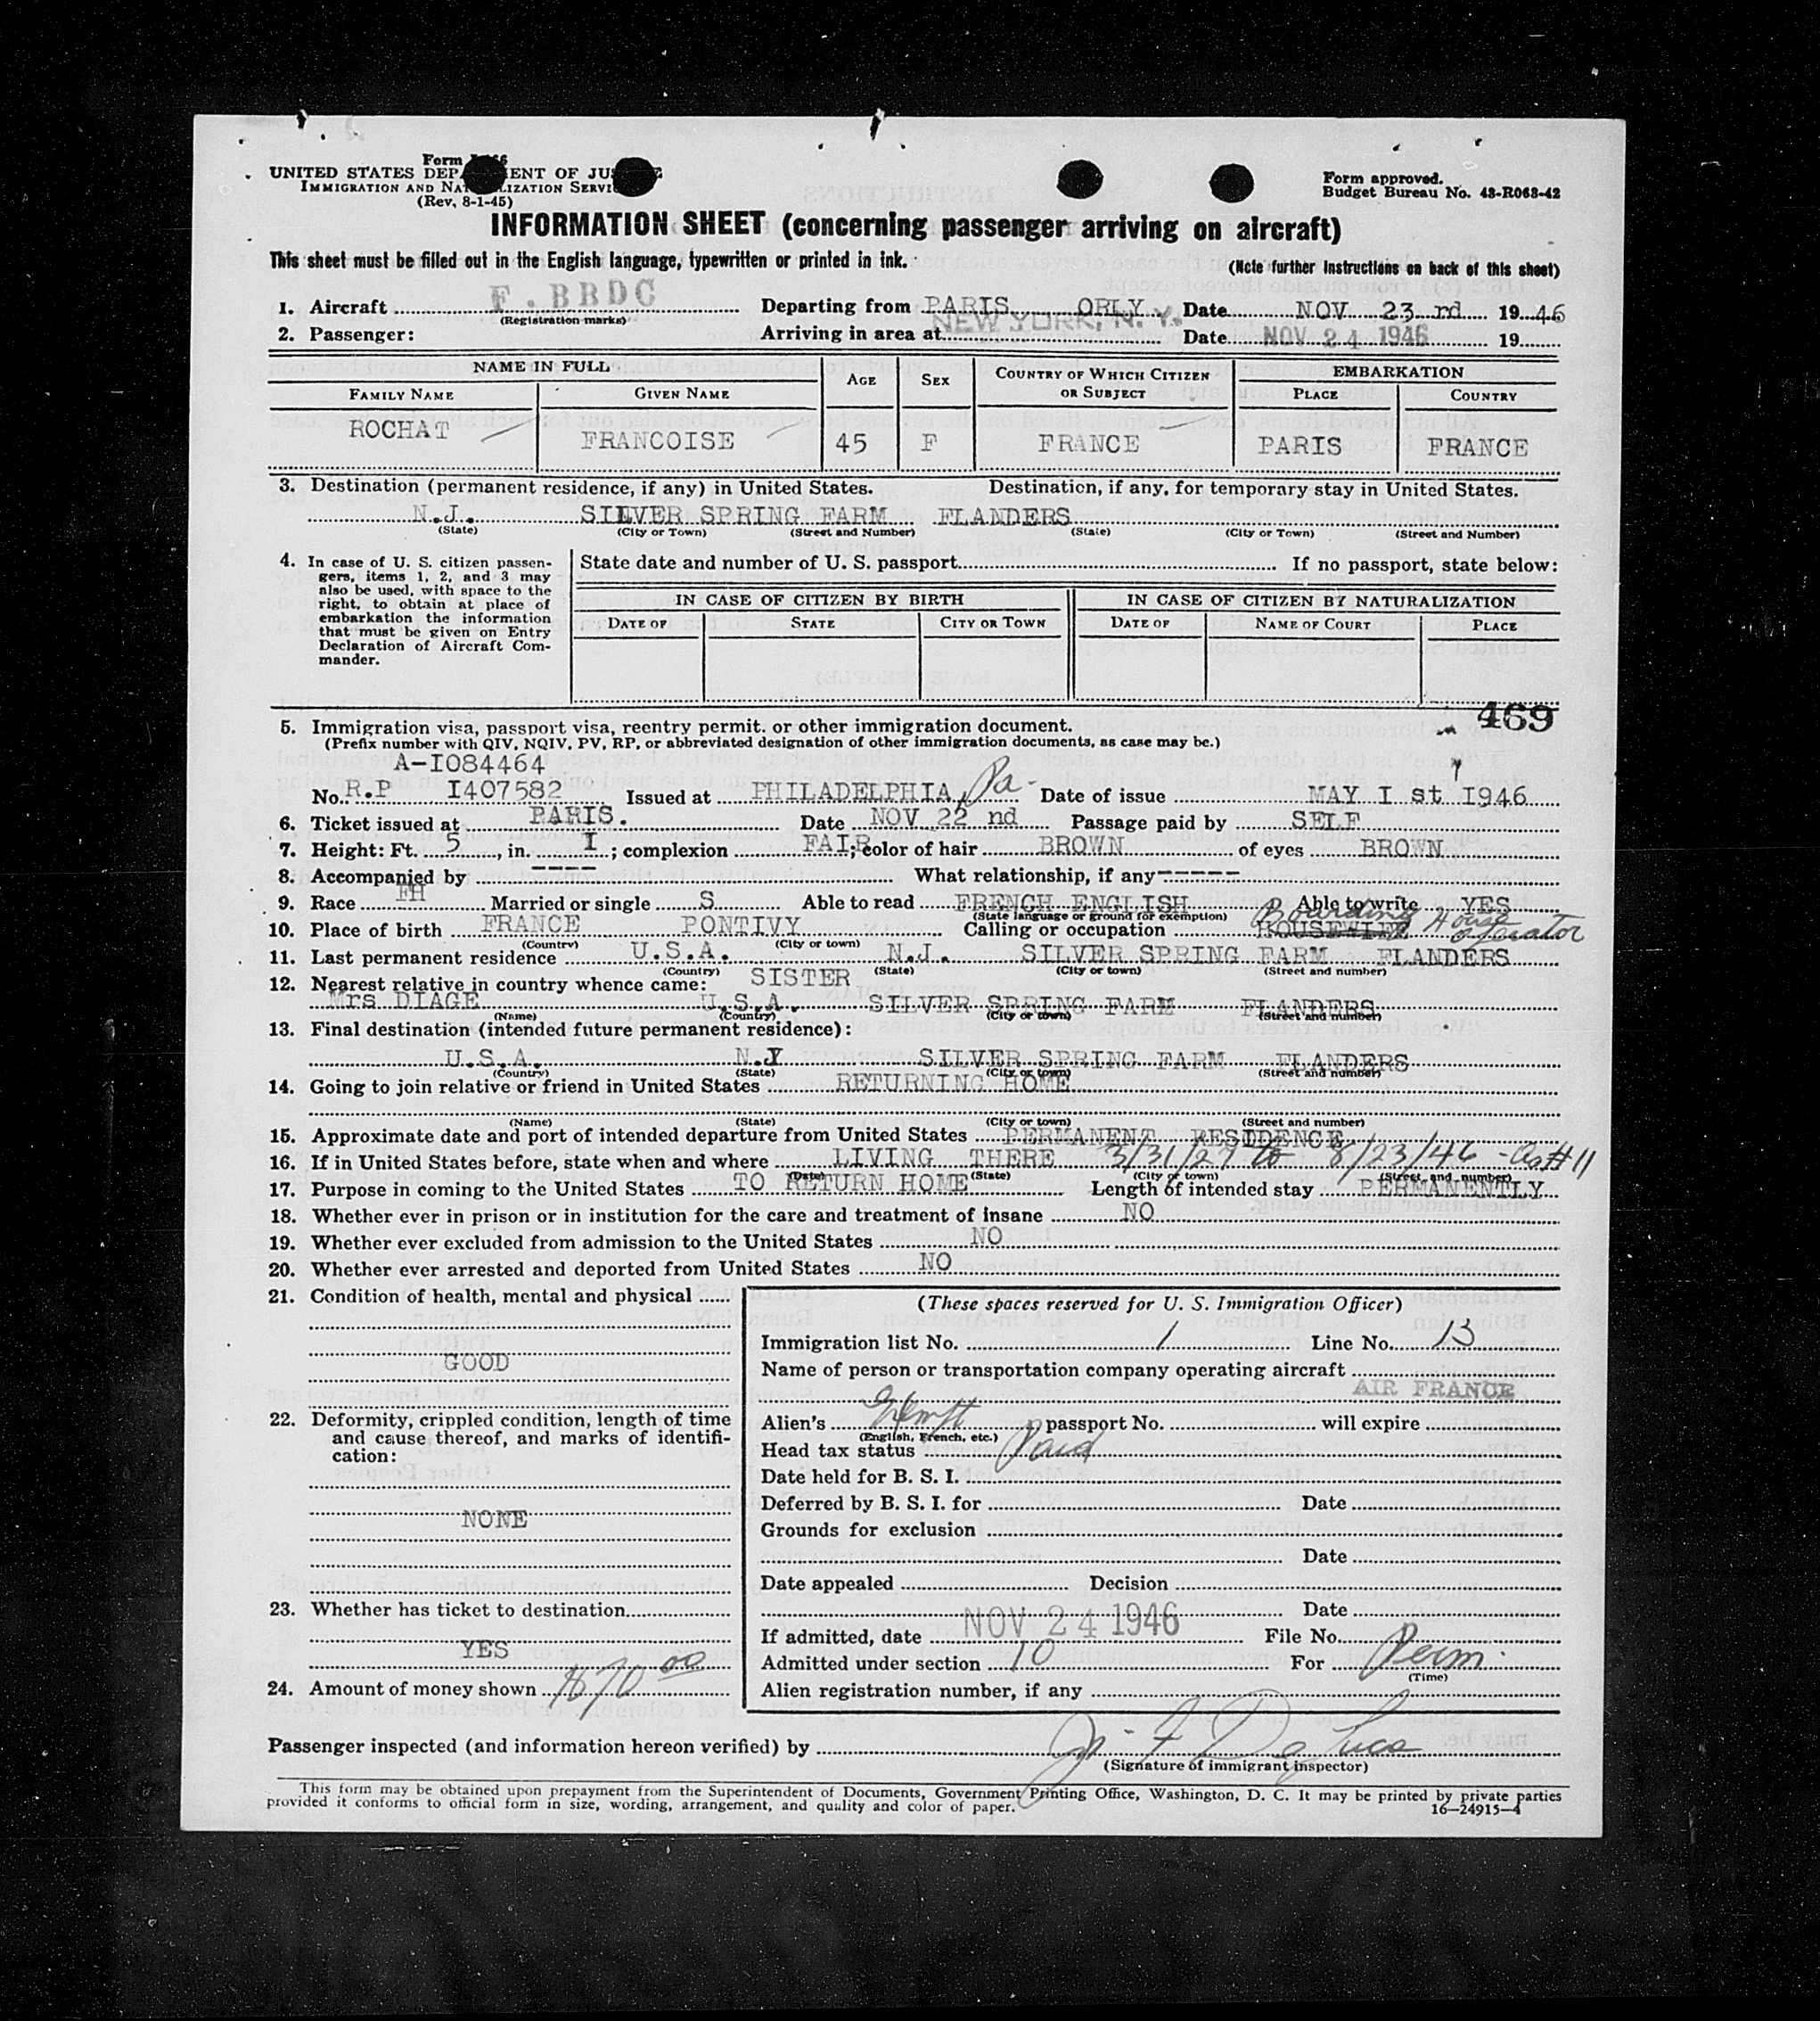 Form I-466
UNITED STATES DEPARTMENT OF JUSTICE
IMMIGRATION AND NATURALIZATION SERVICE
(Rev. 8-1-45)
Form approved.
Budget Bureau No. 43-R063-42
INFORMATION SHEET (concerning passenger arriving on aircraft)
This sheet must be filled out in the English language, typewritten or printed in ink.
(Note further instructions on back of this sheet)
1. Aircraft F.BBDC Departing from PARIS ORLY Date NOV 23 rd 1946
(Registration marks)
2. Passenger: Arriving in area at NEW YORK, N. Y. Date NOV 24 1946 19
NAME IN FULL AGE SEX COUNTRY OF WHICH CITIZEN OR SUBJECT EMBARKATION
FAMILY NAME GIVEN NAME PLACE COUNTRY
ROCHAT FRANCOISE 45 F FRANCE PARIS FRANCE
3. Destination (permanent residence, if any) in United States. Destination, if any, for temporary stay in United States.
N.J. SILVER SPRING FARM FLANDERS
(State) (City or Town) (Street and Number) (State) (City or Town) (Street and Number)
4. In case of U. S. citizen passengers, items 1, 2, and 3 may also be used, with space to the right, to obtain at place of embarkation the information that must be given on Entry Declaration of Aircraft Commander.
State date and number of U. S. passport If no passport, state below:
IN CASE OF CITIZEN BY BIRTH IN CASE OF CITIZEN BY NATURALIZATION
DATE OF STATE CITY OR TOWN DATE OF NAME OF COURT PLACE
469
5. Immigration visa, passport visa, reentry permit. or other immigration document.
(Prefix number with QIV, NQIV, PV, RP, or abbreviated designation of other immigration documents, as case may be.)
A-I084464
No. R.P I407582 Issued at PHILADELPHIA, Pa- Date of issue MAY I st I946
6. Ticket issued at PARIS. Date NOV 22 nd Passage paid by SELF
7. Height: Ft. 5, in. I; complexion FAIR; color of hair BROWN of eyes BROWN
8. Accompanied by ---- What relationship, if any ------
9. Race FH Married or single S Able to read FRENCH ENGLISH Able to write YES
(State language or ground for exemption)
Boarding House operator
10. Place of birth FRANCE PONTIVY Calling or occupation HOUSEWIFE
(Country) (City or town)
11. Last permanent residence U.S.A. N.J. SILVER SPRING FARM FLANDERS
(Country) (State) (City or town) (Street and number)
12. Nearest relative in country whence came: SISTER
Mrs DIAGE U.S.A. SILVER SPRING FARM FLANDERS
(Name) (Country) (City or town) (Street and number)
13. Final destination (intended future permanent residence):
U.S.A. N.J SILVER SPRING FARM FLANDERS
(Country) (State) (City or town) (Street and number)
14. Going to join relative or friend in United States RETURNING HOME
(Name) (State) (City or town) (Street and number)
15. Approximate date and port of intended departure from United States PERMANENT RESIDENCE
16. If in United States before, state when and where LIVING THERE 3/31/27 to 8/23/46 - as #11
(Date) (State) (City or town) (Street and number)
17. Purpose in coming to the United States TO RETURN HOME Length of intended stay PERMANENTLY
18. Whether ever in prison or in institution for the care and treatment of insane NO
19. Whether ever excluded from admission to the United States NO
20. Whether ever arrested and deported from United States NO
21. Condition of health, mental and physical
GOOD
22. Deformity, crippled condition, length of time and cause thereof, and marks of identification:
NONE
23. Whether has ticket to destination
YES
24. Amount of money shown $70 00
(These spaces reserved for U. S. Immigration Officer)
Immigration list No. 1 Line No. 13
Name of person or transportation company operating aircraft
AIR FRANCE
Alien's Exempt passport No. will expire
(English, French, etc.)
Head tax status Paid
Date held for B. S. I.
Deferred by B. S. I. for Date
Grounds for exclusion
Date
Date appealed Decision
Date
If admitted, date NOV 24 1946 File No.
Admitted under section 10 For Perm.
(Time)
Alien registration number, if any
Passenger inspected (and information hereon verified) by
(Signature of immigrant inspector)
This form may be obtained upon prepayment from the Superintendent of Documents, Government Printing Office, Washington, D. C. It may be printed by private parties
provided it conforms to official form in size, wording, arrangement, and quality and color of paper.
16—24915-4